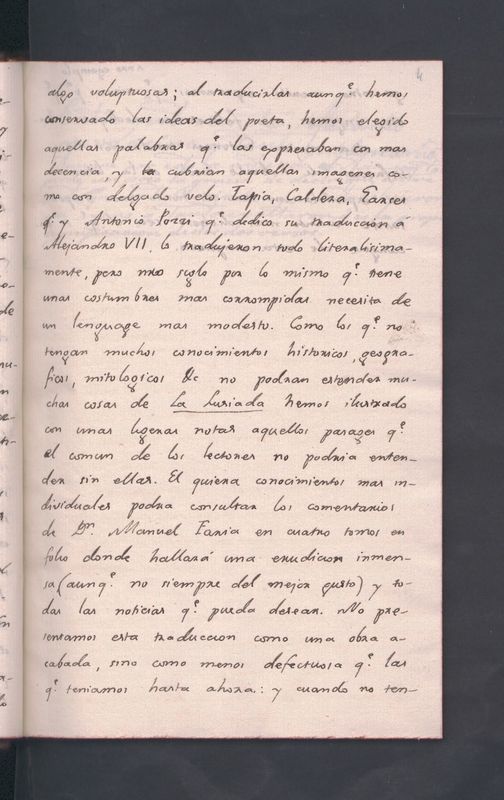 4
algo voluptuosas; al traducirlas aunq.e hemos
conservado las ideas del poeta, hemos elegido
aquellas palabras q.e las expresaban con mas
decencia, y cubrian aquellas imagenes co-
mo con delgado velo. Tapia, Caldera, Garces
y Antonio Pozzi q.e dedico su traduccion á
Alejandro VII, lo tradujeron todo literalisima-
mente, pero nro siglo por lo mismo q.e tiene
unas costumbres mas corrompidas necesita de
un lenguage mas modesto. Como los q.e no
tengan muchos conocimientos historicos, geogra-
ficos, mitologicos &c no podran entender mu-
chas cosas de La Lusiada hemos ilustrado
con unas ligeras notas aquellos parages q.e
el comun de los lectores no podria enten-
der sin ellas. El quiera conocimientos mas in-
dividuales podra consultar los comentarios
de D.n Manuel Faria en cuatro tomos en
folio donde hallará una erudicion inmen-
sa (aunq.e no siempre del mejor gusto) y to-
das las noticias q.e pueda desear. No pre-
sentamos esta traduccion como una obra a-
cabada, sino como menos defectuosa q.e las
q.e teniamos hasta ahora: y cuando no ten-